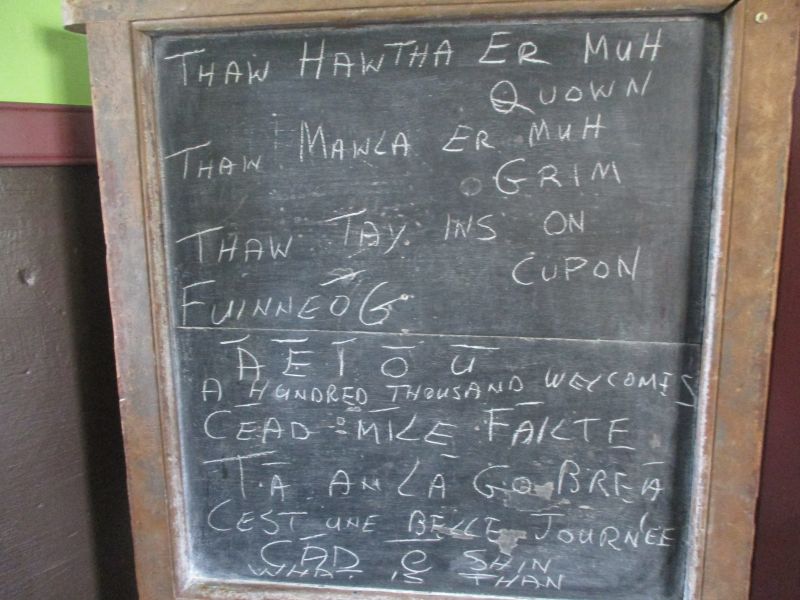 THAW HAWTHA ER MUH
QUOWN
THAW MAWLA ER MUH
GRIM
THAW TAY INS ON
CUPON
FUINNEÓG
Ā Ē Ī Ō Ū
A HUNDRED THOUSAND WELCOMES
CĒAD MĪLE FĀILTE
TĀ AN LĀ GO BREĀ
CEST UNE BELLE JOURNÉE
CĀD Ē SHIN
WHAT IS THAN